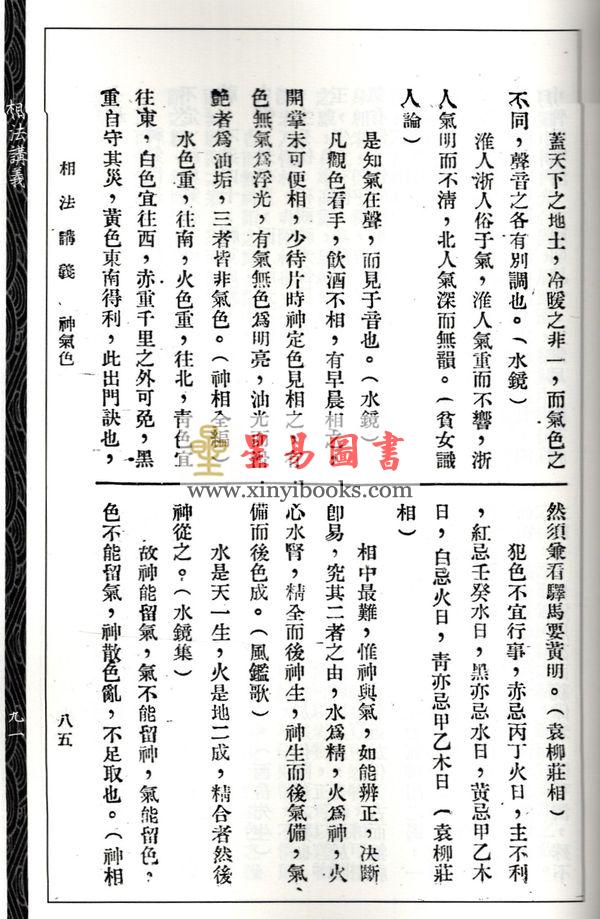 蓋天下之地土，冷暖之非一，而氣色之
不同，聲音之各有別調也。（水鏡）
淮人浙人俗于氣，淮人氣重而不響，浙
人氣明而不清，北人氣深而無韻。（貧女識
人論）
是知氣在聲，而見于音也。（水鏡）
凡觀色看手，飲酒不相，有早晨相之，
開掌未可便相，少待片時神定色見相之，有
色無氣爲浮光，有氣無色爲明亮，油光而
艷者爲油垢，三者皆非氣色。（神相全編）
水色重，往南，火色重，往北，青色宜
往東，白色宜往西，赤重千里之外可免，黑
重自守其災，黃色東南得利，此出門訣也，
然須兼看驛馬要黃明。（袁柳莊相）
犯色不宜行事，赤忌丙丁火日，主不利
，紅忌壬癸水日，黑亦忌水日，黃忌甲乙木
日，白忌火日，青亦忌甲乙木日（袁柳莊
相）
相中最難，惟神與氣，如能辨正，決斷
卽易，究其二者之由，水爲精，火爲神，火
心水腎，精全而後神生，神生而後氣備，氣
備而後色成。（風鑑歌）
水是天一生，火是地二成，精合者然後
神從之。（水鏡集）
故神能留氣，氣不能留神，氣能留色，
色不能留氣，神散色亂，不足取也。（神相
相法講義　神氣色
八五
相法講義
九一
星易圖書
www.xinyibooks.com